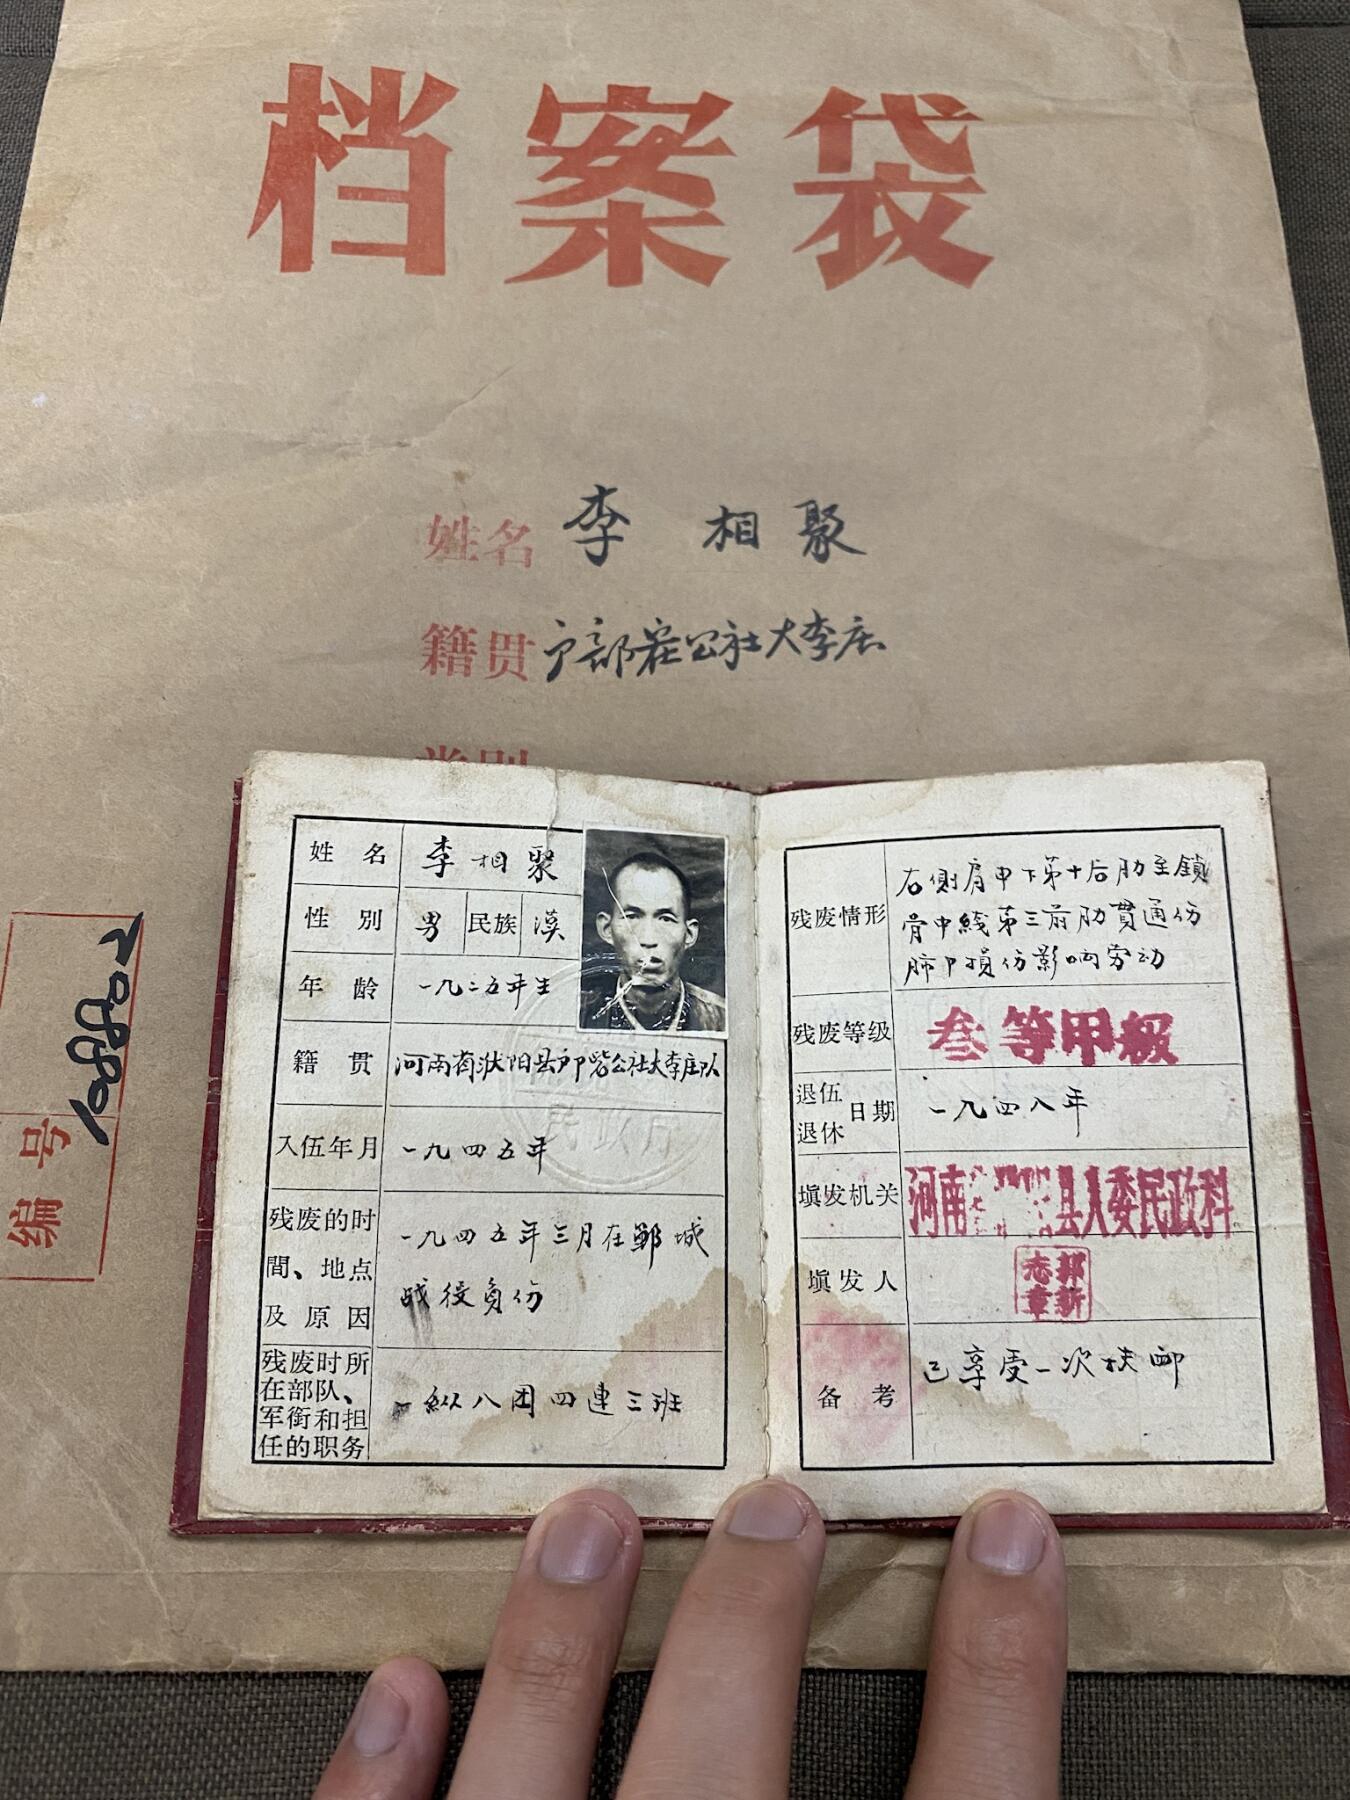 档案袋
姓名 李相聚
籍贯 户部寨公社大李庄
编号
姓名 李相聚
性别 男 民族 汉
年龄 一九二五年生
籍贯 河南省濮阳县户部砦公社大李庄队
入伍年月 一九四五年
残废的时間、地点及原因
一九四五年三月在鄆城
战役負伤
残废时所在部队、军衔和担任的职务
一纵八团四連三班
民政厅
残废情形
右側肩甲下第十后肋至鎖
骨中綫第三前肋貫通伤
肺部損伤影响劳动
残废等级 叁等甲級
退伍退休日期 一九四八年
填发机关 河南 县人委民政科
填发人 郭新志章
备考 已享受一次扶卹